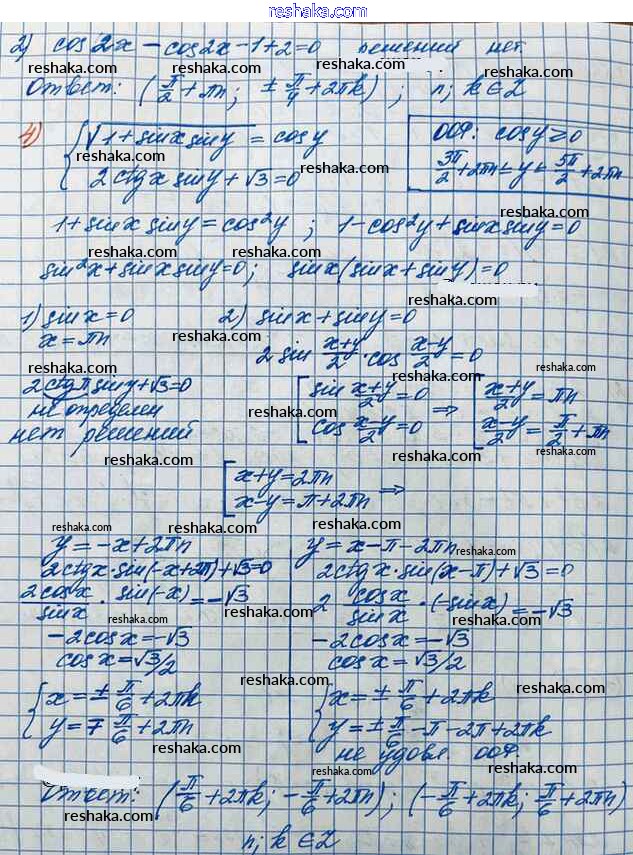 reshaka.com
2) cos 2x − cos 2x − 1 + 2 = 0 решений нет.
Ответ: (π/2 + πn; ± π/4 + 2πk); n; k ∈ Z
4) { √(1 + sin x sin y) = cos y
2 ctg x sin y + √3 = 0
ООФ: cos y ≥ 0
3π/2 + 2πn ≤ y ≤ 5π/2 + 2πn
1 + sin x sin y = cos²y ; 1 − cos²y + sin x sin y = 0
sin²x + sin x sin y = 0; sin x (sin x + sin y) = 0
1) sin x = 0
x = πn
2ctg π sin y + √3 = 0
не определен
нет решений
2) sin x + sin y = 0
2 sin (x+y)/2 · cos (x−y)/2 = 0
[ sin (x+y)/2 = 0 ⇒ [ (x+y)/2 = πn
cos (x−y)/2 = 0 (x−y)/2 = π/2 + πn
[ x + y = 2πn
x − y = π + 2πn ⇒
y = −x + 2πn
2ctg x · sin(−x + 2π) + √3 = 0
2cos x / sin x · sin(−x) = −√3
−2cos x = −√3
cos x = √3/2
{ x = ± π/6 + 2πk
y = ∓ π/6 + 2πn
y = x − π − 2πn
2ctg x · sin(x − π) + √3 = 0
2 cos x / sin x · (−sin x) = −√3
−2cos x = −√3
cos x = √3/2
{ x = ± π/6 + 2πk
y = ± π/6 − π − 2π + 2πk
не удовл. ООФ.
Ответ: (π/6 + 2πk; −π/6 + 2πn); (−π/6 + 2πk; π/6 + 2πn)
n; k ∈ Z